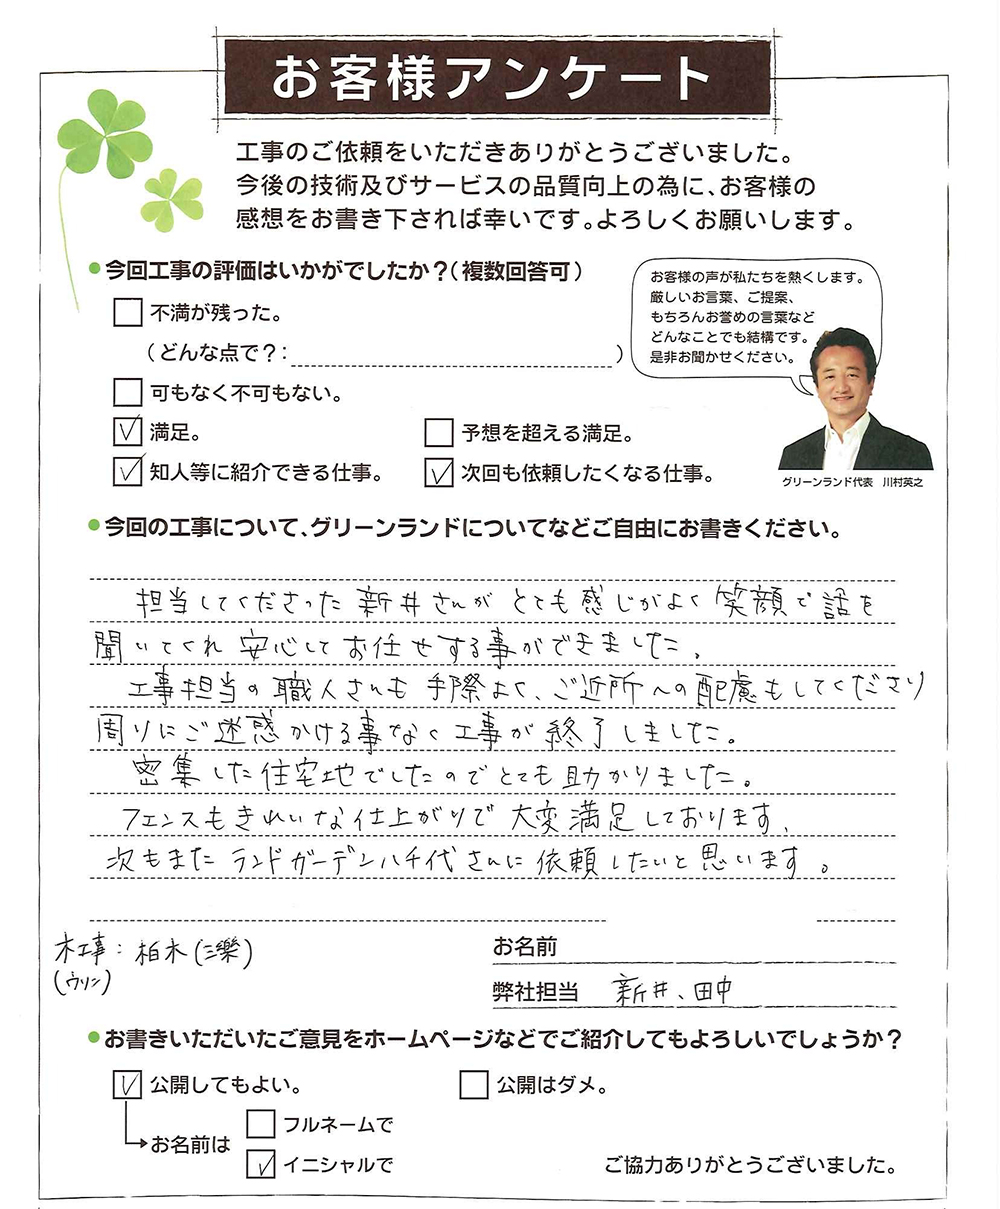 お客様アンケート
工事のご依頼をいただきありがとうございました。
今後の技術及びサービスの品質向上の為に、お客様の
感想をお書き下されば幸いです。よろしくお願いします。
●今回工事の評価はいかがでしたか？（複数回答可）
不満が残った。
（どんな点で？：　）
可もなく不可もない。
満足。
予想を超える満足。
知人等に紹介できる仕事。
次回も依頼したくなる仕事。
お客様の声が私たちを熱くします。
厳しいお言葉、ご提案、
もちろんお誉めの言葉など
どんなことでも結構です。
是非お聞かせください。
グリーンランド代表　川村英之
●今回の工事について、グリーンランドについてなどご自由にお書きください。
担当してくださった新井さんがとても感じがよく笑顔で話を
聞いてくれ安心してお任せする事ができました。
工事担当の職人さんも手際よく、ご近所への配慮もしてくださり
周りにご迷惑かける事なく工事が終了しました。
密集した住宅地でしたのでとても助かりました。
フェンスもきれいな仕上がりで大変満足しております、
次もまたランドガーデン八千代さんに依頼したいと思います。
木工事：柏木(三樂)
(ウリン)
お名前
弊社担当　新井、田中
●お書きいただいたご意見をホームページなどでご紹介してもよろしいでしょうか？
公開してもよい。
公開はダメ。
お名前は
フルネームで
イニシャルで
ご協力ありがとうございました。